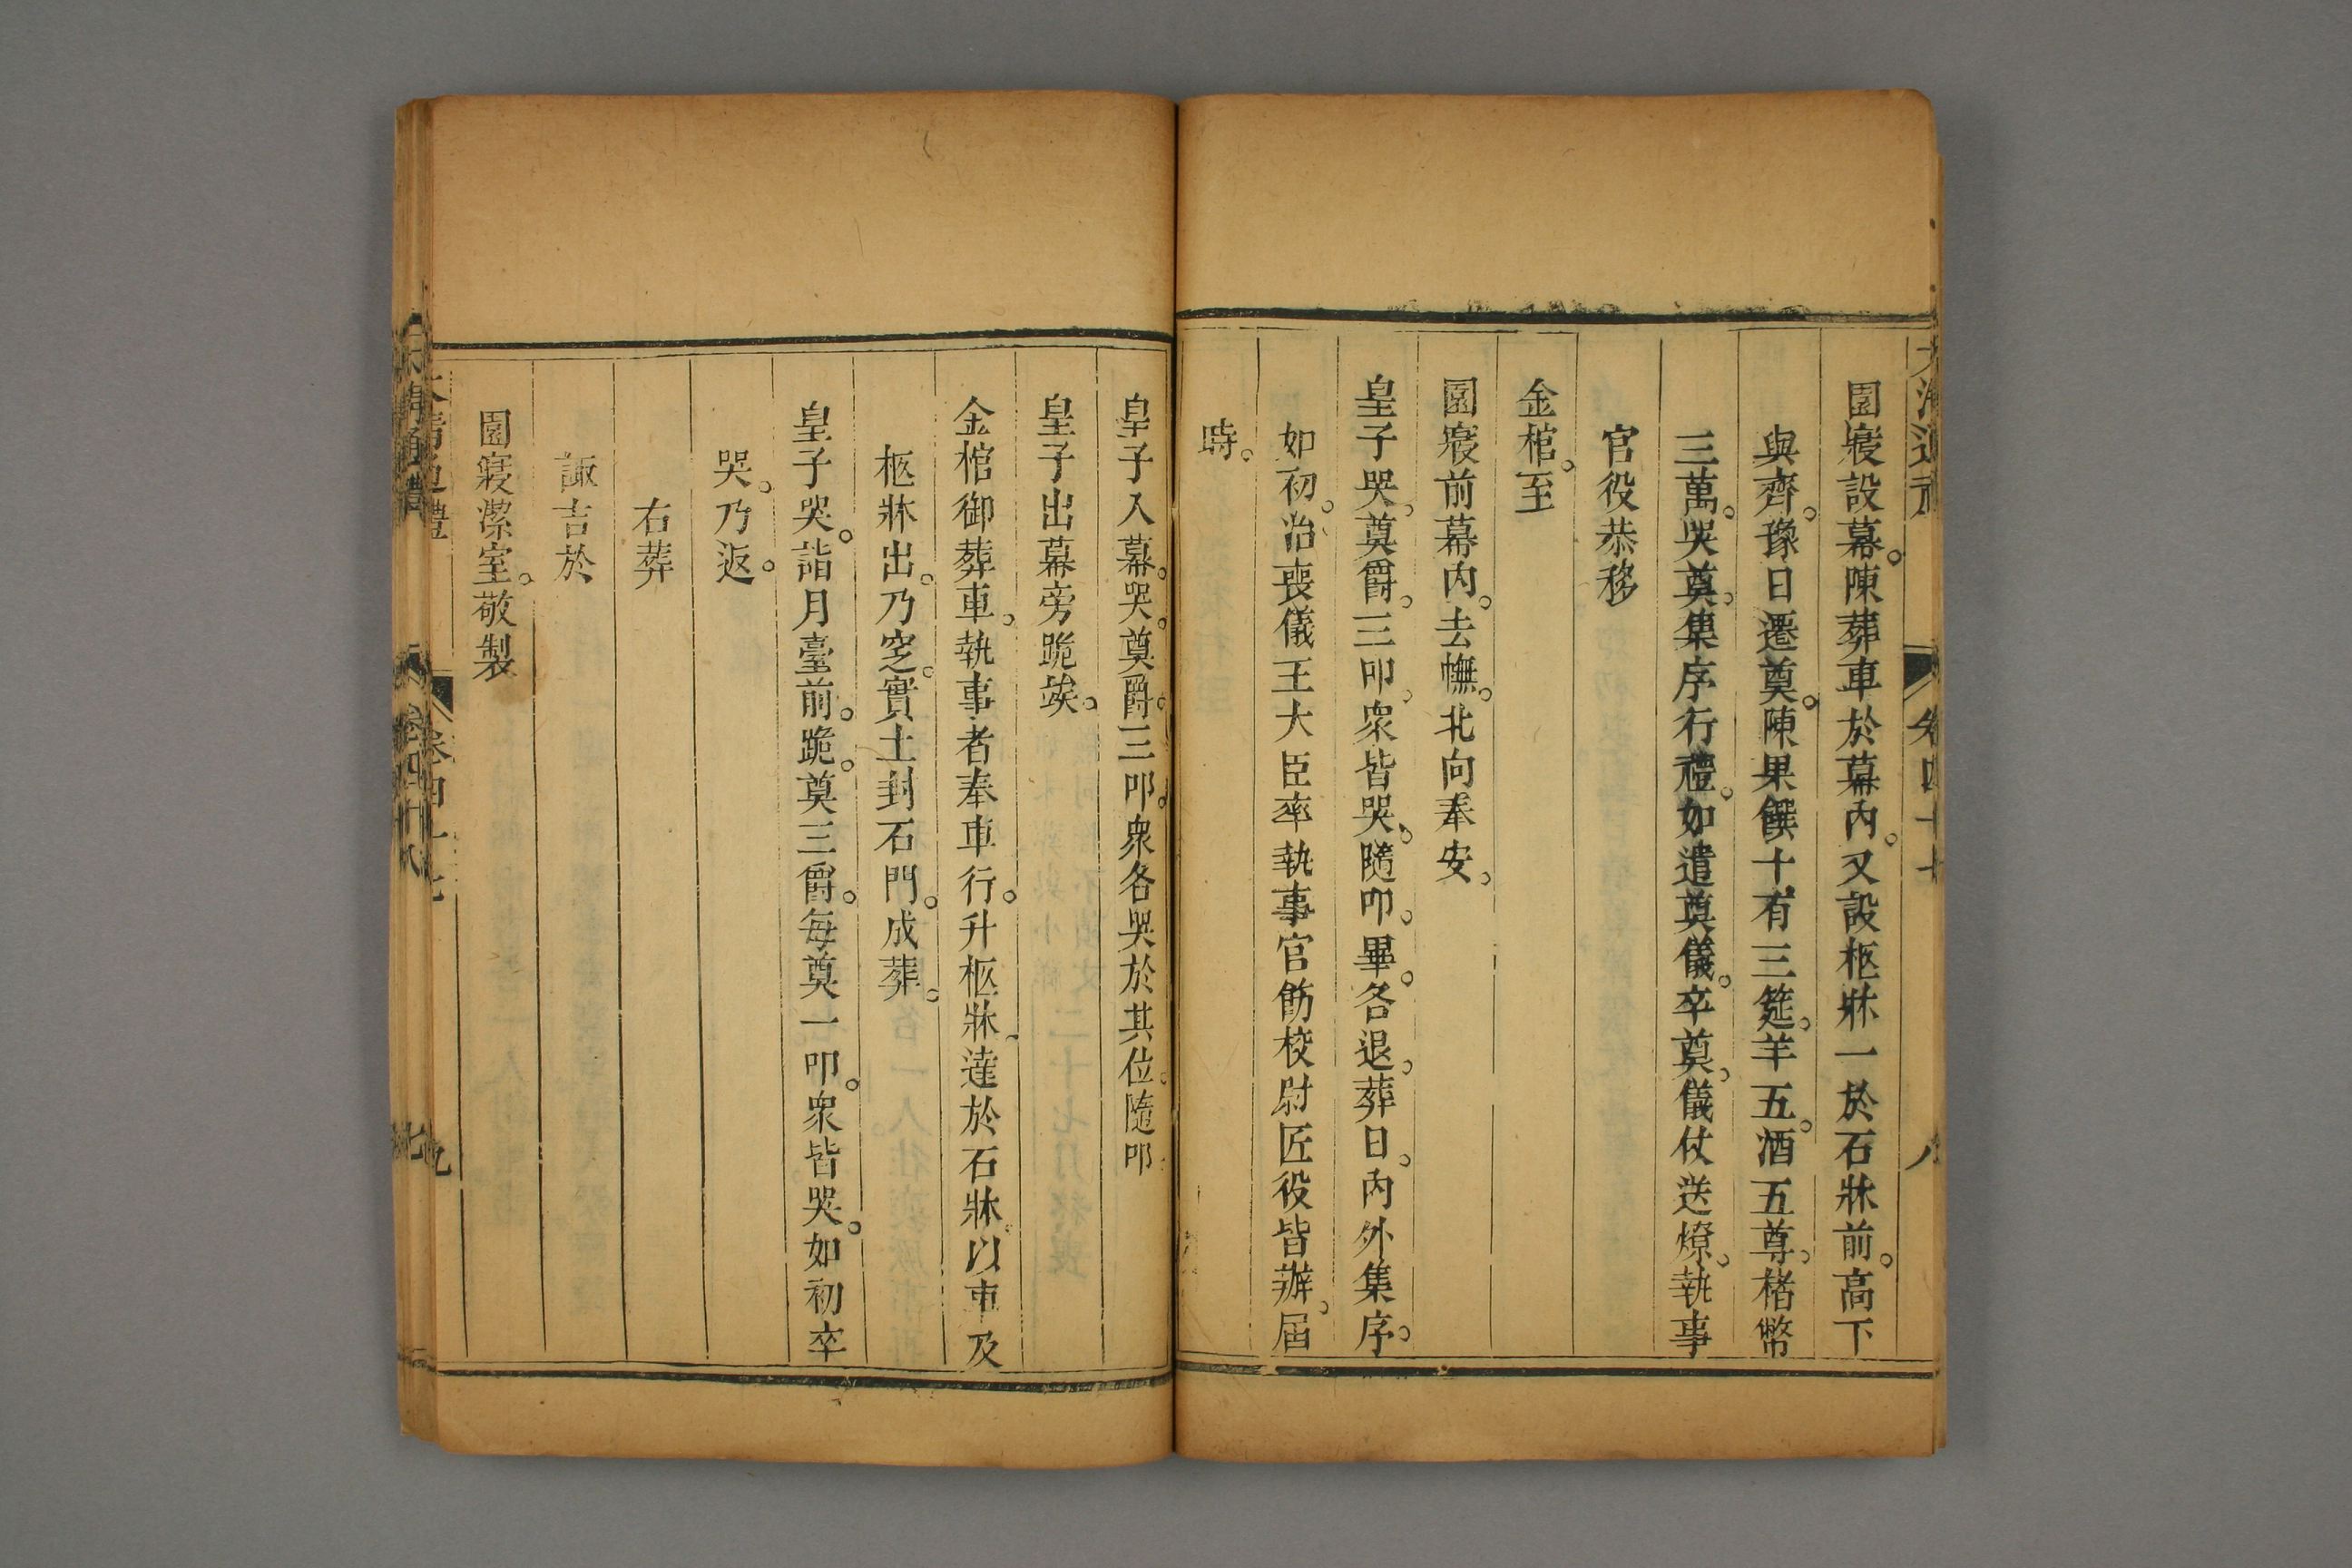 園寢設幕。陳葬車於幕內。又設柩牀一於石牀前。高下
與齊。豫日遷奠。陳果饌十有三筵。羊五。酒五尊。楮幣
三萬。哭奠。集序行禮。如遣奠儀。卒奠。儀仗送燎。執事
官役恭移
金棺。至
園寢前幕內。去幠。北向奉安。
皇子哭。奠爵。三叩。衆皆哭。隨叩。畢。各退。葬日。內外集序。
如初。治喪儀王大臣率執事官飭校尉匠役皆辦。屆
時。
皇子入幕。哭。奠爵。三叩。衆各哭於其位。隨叩。
皇子出幕旁跪竢。
金棺御葬車。執事者奉車行。升柩牀。達於石牀。以車及
柩牀出。乃窆。實土封石門。成葬。
皇子哭。詣月臺前。跪。奠三爵。每奠一叩。衆皆哭。如初卒
哭。乃返。
右葬
諏吉於
園寢潔室。敬製
大清通禮
卷四十七
九